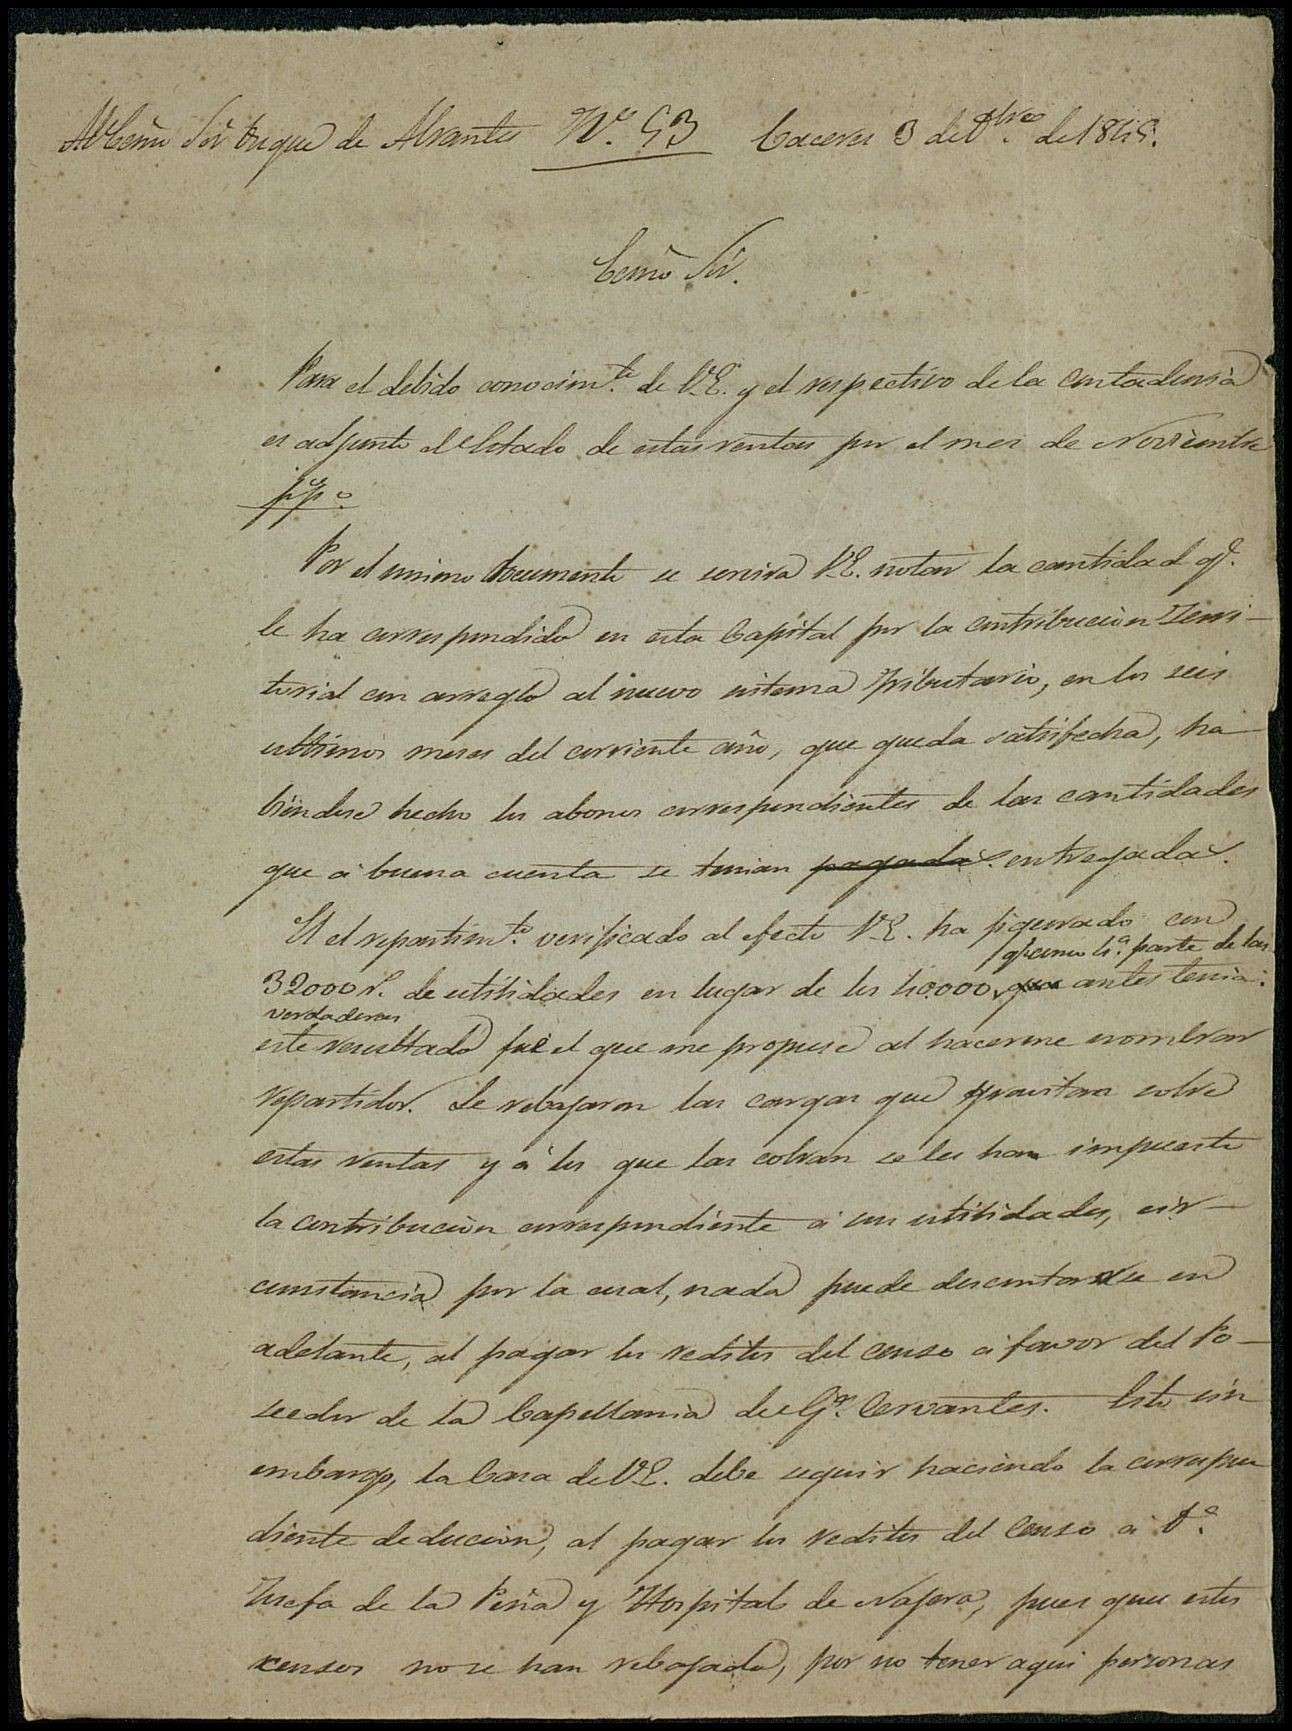 Al Ecsmo Sôr Duque de Abrantes Nº. 53 Caceres 3 de Dbre. de 1845.
Ecsmo Sôr.
Para el debido conocimto. de V.E. y el respectivo de la contaduria
es adjunto el Estado de estas rentas por el mes de Noviembre
ppº.
Por el mismo documento se servira V.E. notar la cantidad qe.
le ha correspondido en esta Capital por la contribucion Terri-
torial con arreglo al nuevo sistema tributario, en los seis
ultimos meses del corriente año, que queda satisfecha, ha-
biendose hecho los abonos correspondientes de las cantidades
que á buena cuenta se tenian pagadas. entregadas.
el repartimto. verificado al efecto V.E. ha figurado con
qe. como 4ª. parte de las
32000 r. de utilidades en lugar de los 40.000, que antes tenia:
verdaderas
este resultado fué el que me propuse al hacerme nombrar
repartidor. Se rebajaron las cargas que gravitan sobre
estas rentas y á los que las cobran se les han impuesto
la contribucion correspondiente á sus utilidades, cir-
cunstancia por la cual, nada puede descontarse en
adelante, al pagar los reditos del censo á favor del Po-
seedor de la Capellania de Gª. Cervantes. Esto sin
embargo, la Casa de V.E. debe seguir haciendo la correspon
diente deducion, al pagar los reditos del Censo á Dª.
Josefa de la Peña y Hospital de Najera, pues que estos
censos no se han rebajado, por no tener aqui personas